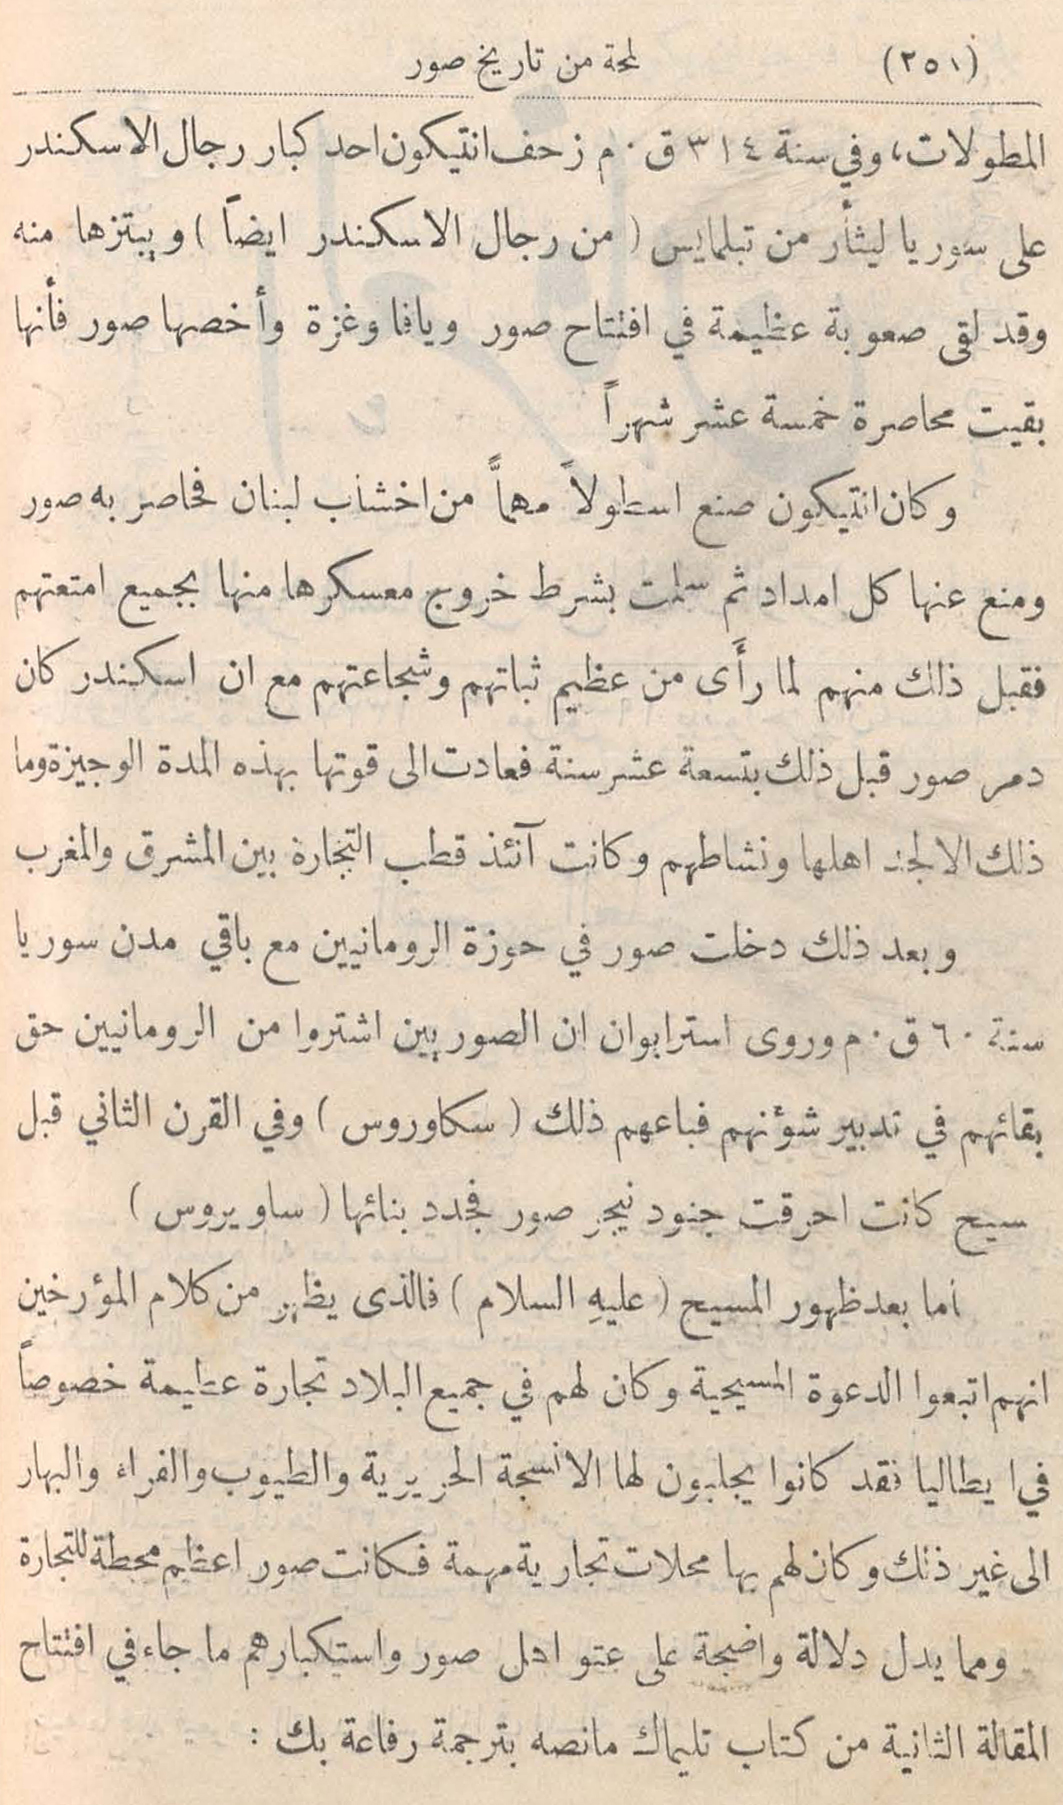 (٢٥١) لمحة من تاريخ صور
المطولات، وفي سنة ٣١٤ ق ٠ م زحف انتيكون احد كبار رجال الاسكندر
على سوريا ليثأر من تبلمايس ( من رجال الاسكندر ايضاً ) ويبتزها منه
وقد لقى صعوبة عظيمة في افتتاح صور ويافا وغزة وأخصها صور فأنها
بقيت محاصرة خمسة عشر شهراً
وكان انتيكون صنع اسطولاً مهماً من اخشاب لبنان فحاصر به صور
ومنع عنها كل امداد ثم سلمت بشرط خروج معسكرها منها بجميع امتعتهم
فقبل ذلك منهم لما رأَى من عظيم ثباتهم وشجاعتهم مع ان اسكندر كان
دمر صور قبل ذلك بتسعة عشر سنة فعادت الى قوتها بهذه المدة الوجيزة وما
ذلك الا لجد اهلها ونشاطهم وكانت آنئذ قطب التجارة بين المشرق والمغرب
وبعد ذلك دخلت صور في حوزة الرومانيين مع باقي مدن سوريا
سنة ٦٠ ق ٠ م وروى استرابوان ان الصوريين اشتروا من الرومانيين حق
بقائهم في تدبير شؤنهم فباعهم ذلك ( سكاوروس ) وفي القرن الثاني قبل
سيح كانت احرقت جنود نيجر صور فجدد بنائها ( ساويروس )
اما بعد ظهور المسيح ( عليهِ السلام ) فالذى يظهر من كلام المؤرخين
انهم اتبعوا الدعوة المسيحية وكان لهم في جميع البلاد تجارة عظيمة خصوصاً
في ايطاليا فقد كانوا يجلبون لها الانسجة الحريرية والطيوب والفراء والبهار
الى غير ذلك وكان لهم بها محلات تجارية مهمة فكانت صور اعظم محطة للتجارة
ومما يدل دلالة واضحة على عتو اهل صور واستكبارهم ما جاء في افتتاح
المقالة الثانية من كتاب تليماك مانصه بترجمة رفاعة بك :